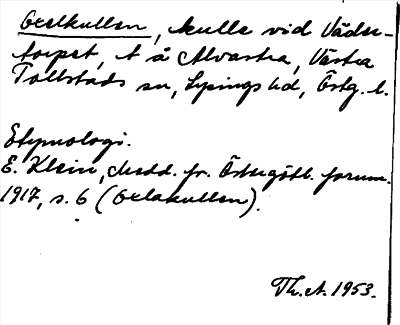 Oxelkullen, kulle vid Väder-
torpet, t å Alvastra, Västra
Tollstads sn, Lysings hd, Östg. l.
Etymologi.
E. Klein, Medd. fr. Östergötl. fornm.
1917, s. 6 (Oxlakullen).
Th. A. 1953.